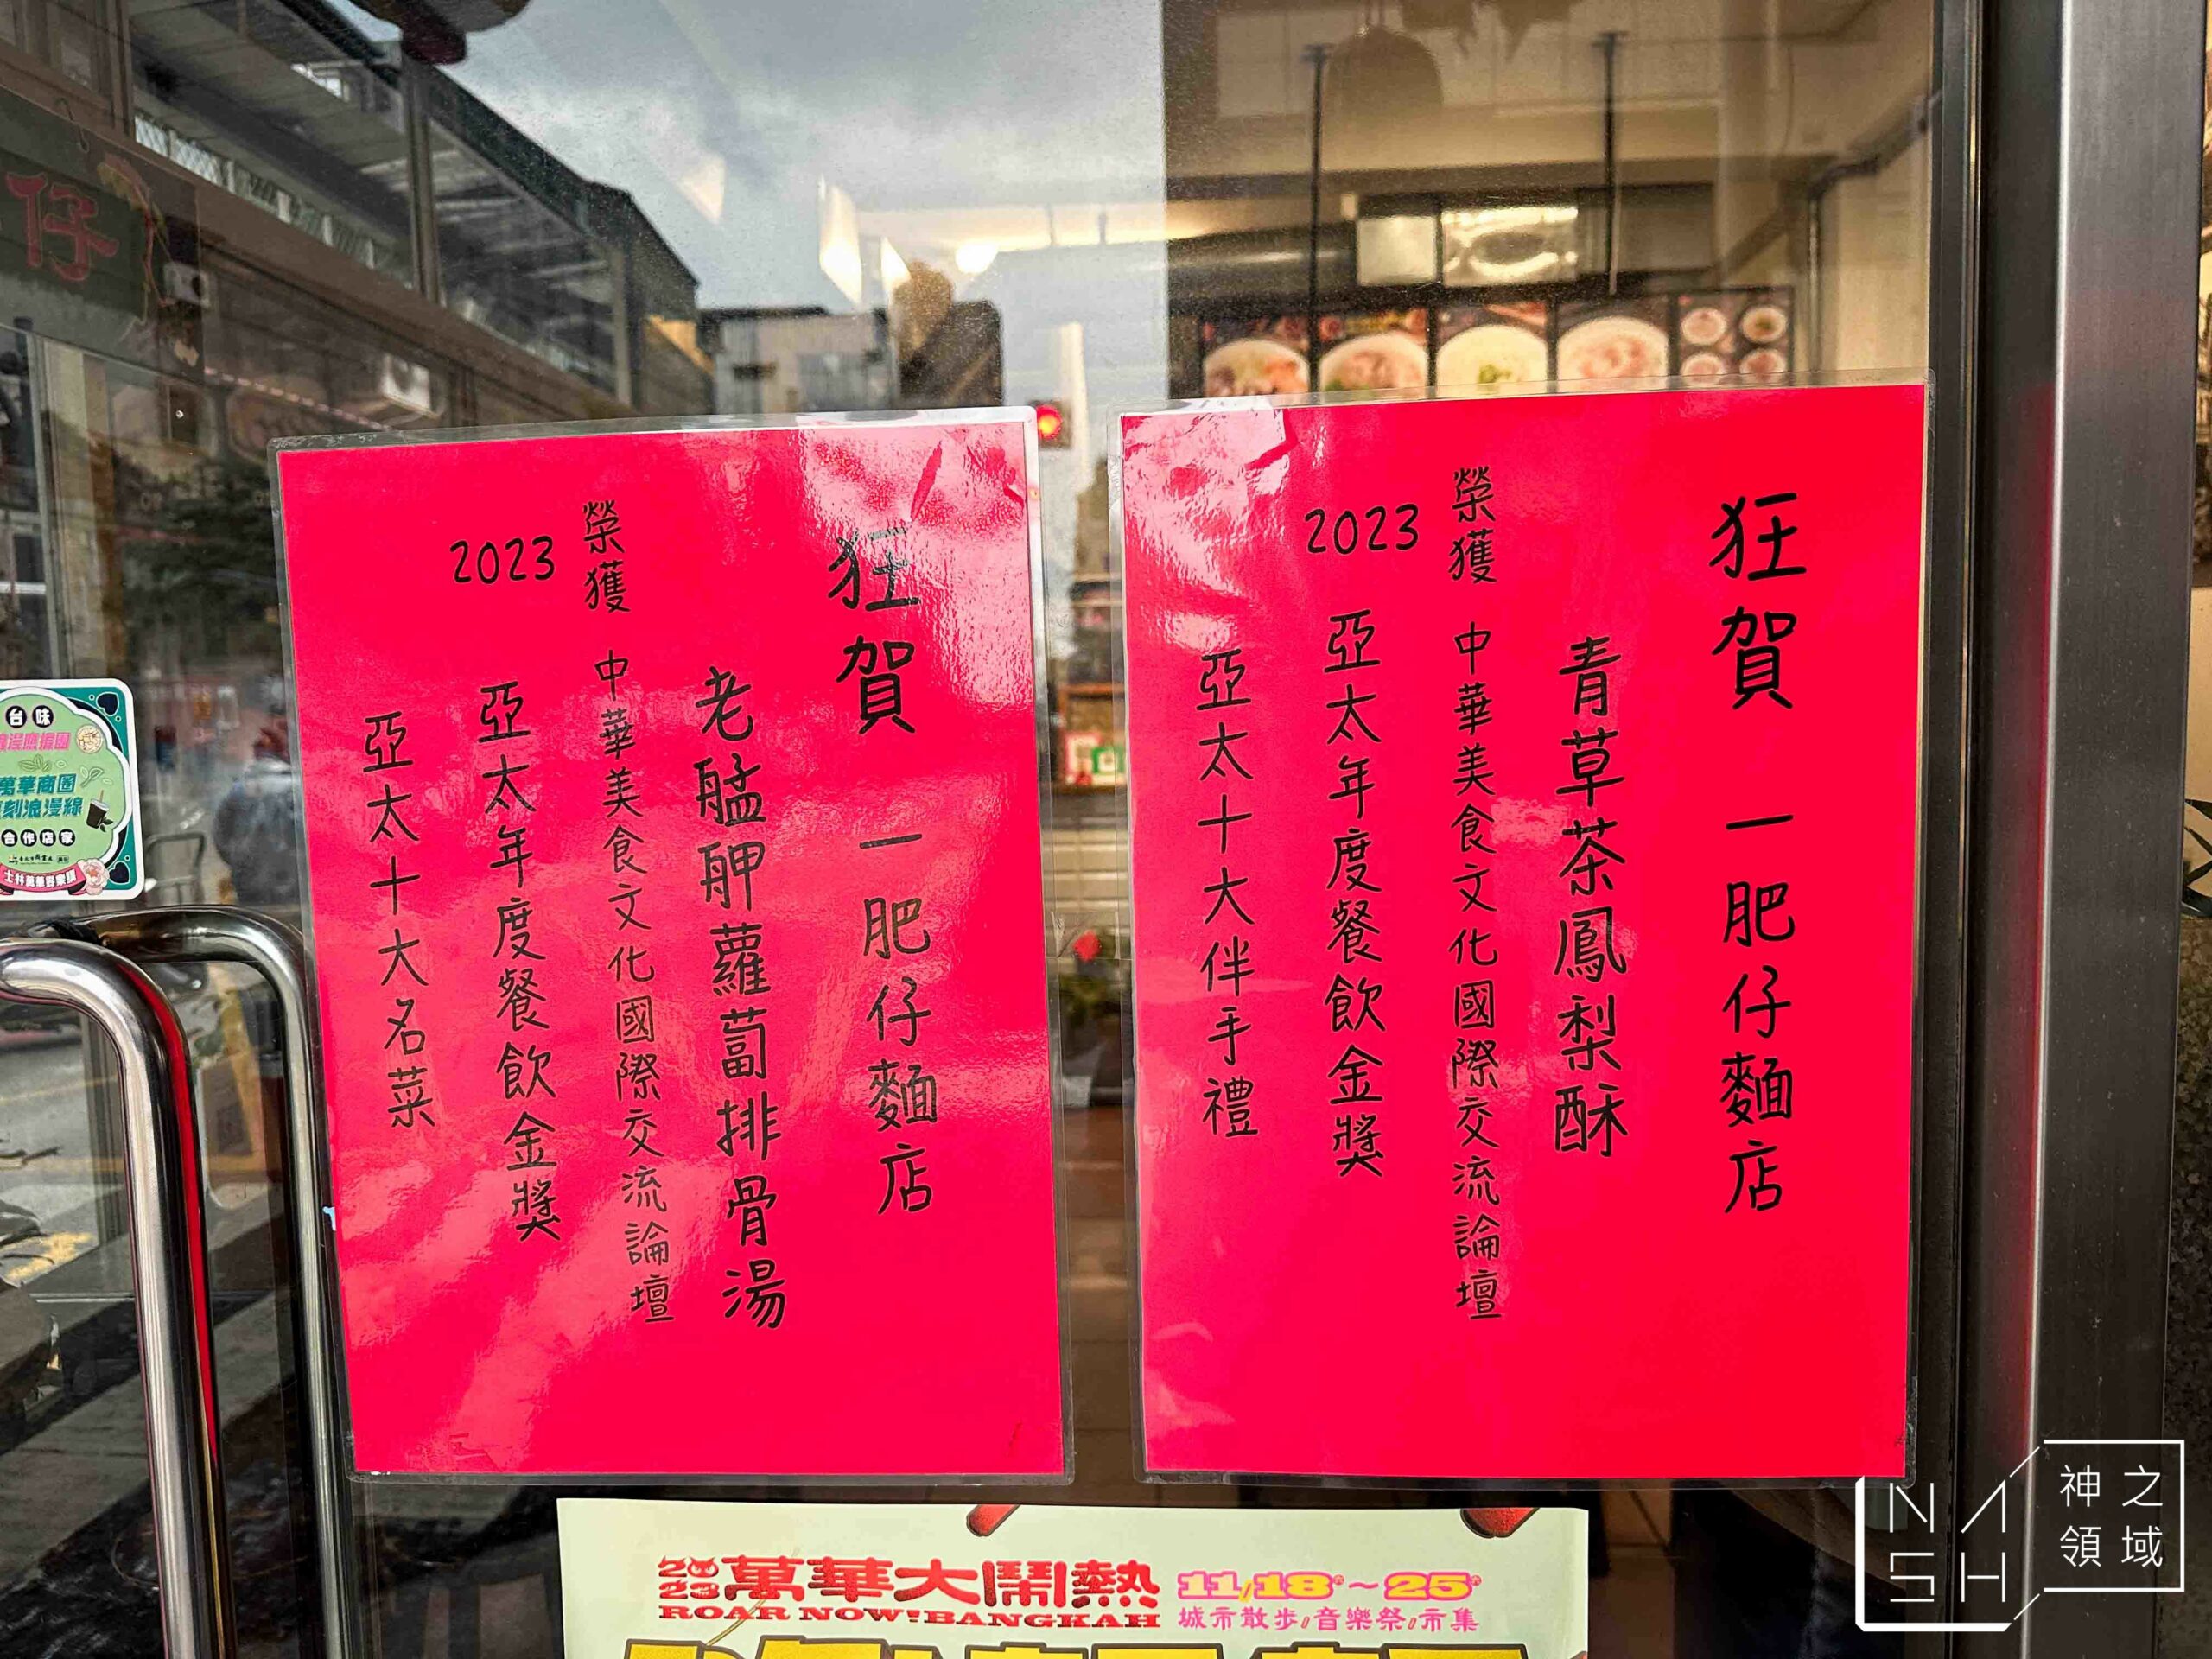 狂賀 一肥仔麵店
青草茶鳳梨酥
榮獲 中華美食文化國際交流論壇
2023 亞太年度餐飲金獎
亞太十大伴手禮
狂賀 一肥仔麵店
老艋舺蘿蔔排骨湯
榮獲 中華美食文化國際交流論壇
2023 亞太年度餐飲金獎
亞太十大名菜
仔
台味
萬華商圈
刻浪漫線
合作店家
2023 萬華大鬧熱
ROAR NOW! BANGKAH
11/18~25
城市散步/音樂祭/市集
NASH
神之領域